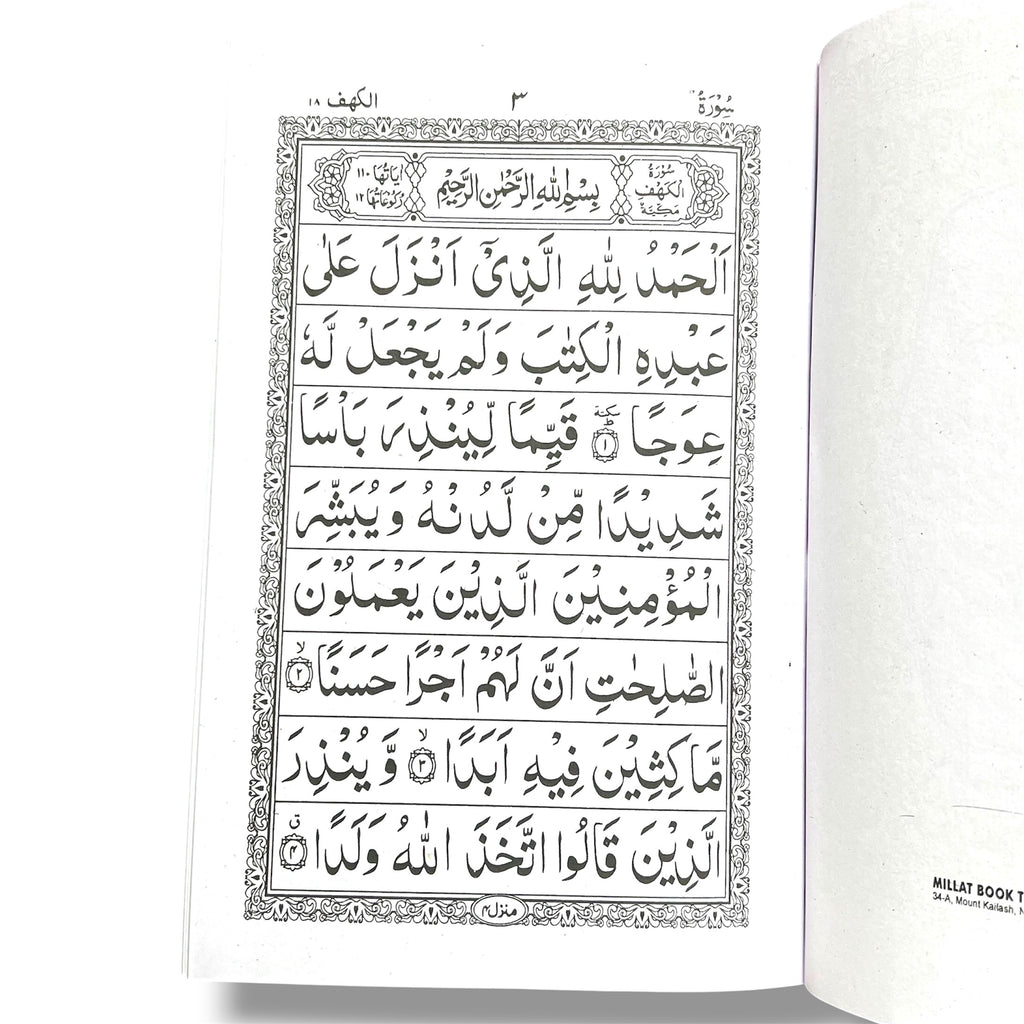 سُوْرَةُ ٣ الکهف ١٨
سُوْرَةُ الْكَهْفِ مَكِّيَّةٌ
بِسْمِ اللهِ الرَّحْمٰنِ الرَّحِيْمِ
اٰيَاتُهَا ١١٠ رُكُوْعَاتُهَا ١٢
اَلْحَمْدُ لِلّٰهِ الَّذِيْۤ اَنْزَلَ عَلٰى
عَبْدِهِ الْكِتٰبَ وَلَمْ يَجْعَلْ لَّهٗ
عِوَجًا ؕ سكتة ١ قَيِّمًا لِّيُنْذِرَ بَاْسًا
شَدِيْدًا مِّنْ لَّدُنْهُ وَيُبَشِّرَ
الْمُؤْمِنِيْنَ الَّذِيْنَ يَعْمَلُوْنَ
الصّٰلِحٰتِ اَنَّ لَهُمْ اَجْرًا حَسَنًا ۙ ٢
مَّاكِثِيْنَ فِيْهِ اَبَدًا ۙ ٣ وَّيُنْذِرَ
الَّذِيْنَ قَالُوا اتَّخَذَ اللّٰهُ وَلَدًا ق ۴
منزل ۴
MILLAT BOOK
34-A, Mount Kailash,